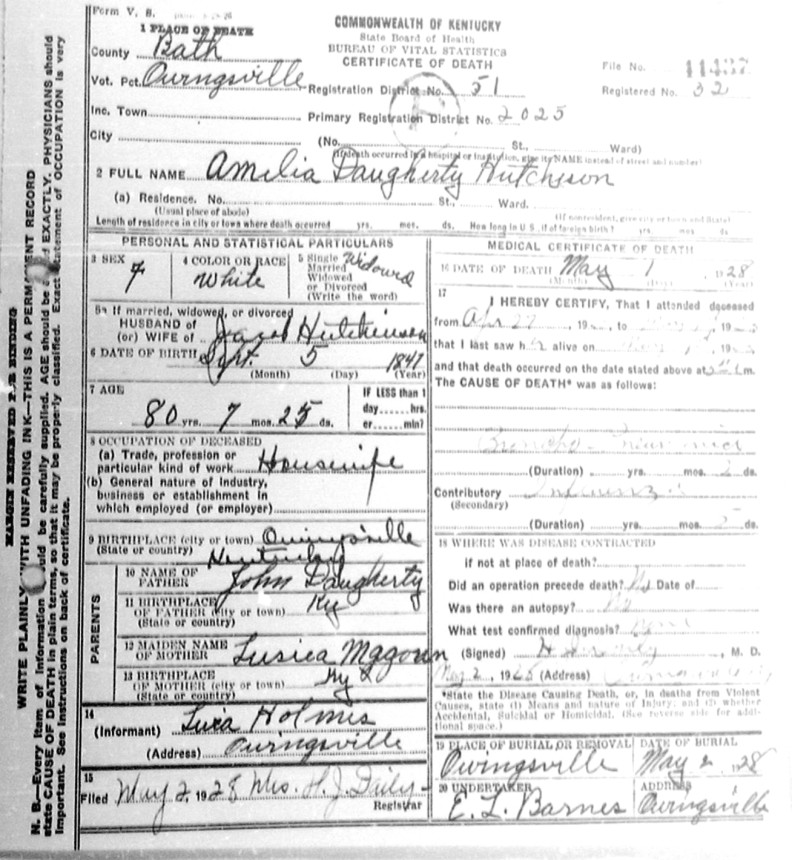 Form V. S.
COMMONWEALTH OF KENTUCKY
State Board of Health
BUREAU OF VITAL STATISTICS
CERTIFICATE OF DEATH
1 PLACE OF DEATH
County Bath
Vot. Pct. Owingsville
Inc. Town
City
Registration District No. 51
Primary Registration District No. 2025
File No.
Registered No. 32
(No. St., Ward)
(If death occurred in a hospital or institution, give its NAME instead of street and number)
2 FULL NAME Amelia Daugherty Hutcheson
(a) Residence. No. St., Ward.
(Usual place of abode) (If nonresident, give city or town and State)
Length of residence in city or town where death occurred yrs. mos. ds. How long in U. S., if of foreign birth? yrs. mos. ds
PERSONAL AND STATISTICAL PARTICULARS
3 SEX F
4 COLOR OR RACE White
5 Single Married Widowed or Divorced (Write the word) Widowed
5a If married, widowed, or divorced
HUSBAND of
(or) WIFE of Jacob Hutchinson
6 DATE OF BIRTH Sept. 5 1847
(Month) (Day) (Year)
7 AGE
80 yrs. 7 mos. 25 ds.
IF LESS than 1
day......hrs.
or......min?
8 OCCUPATION OF DECEASED
(a) Trade, profession or
particular kind of work Housewife
(b) General nature of industry,
business or establishment in
which employed (or employer)
9 BIRTHPLACE (city or town) Owingsville
(State or country) Kentucky
PARENTS
10 NAME OF
FATHER John Daugherty
11 BIRTHPLACE
OF FATHER (city or town) Ky
(State or country)
12 MAIDEN NAME
OF MOTHER Lusica Magown
13 BIRTHPLACE
OF MOTHER (city or town) Ky
(State or country)
14
(Informant) Holmes
(Address) Owingsville
15
Filed May 2, 1928 Mrs. H. J. Daily
Registrar
MEDICAL CERTIFICATE OF DEATH
16 DATE OF DEATH May 1 1928
17
I HEREBY CERTIFY, That I attended deceased
from Apr 27, 19 , to , 19
that I last saw her alive on , 19
and that death occurred on the date stated above at m.
The CAUSE OF DEATH* was as follows:
Broncho-Pneumonia
(Duration) yrs. mos. 2 ds.
Contributory Influenza
(Secondary)
(Duration) yrs. mos. 5 ds.
18 WHERE WAS DISEASE CONTRACTED
if not at place of death?
Did an operation precede death? No Date of
Was there an autopsy? No
What test confirmed diagnosis?
(Signed) , M. D.
May 2, 1928 (Address)
*State the Disease Causing Death, or, in deaths from Violent
Causes, state (1) Means and nature of Injury; and (2) whether
Accidental, Suicidal or Homicidal. (See reverse side for additional space.)
19 PLACE OF BURIAL OR REMOVAL Owingsville
DATE OF BURIAL May 2 1928
20 UNDERTAKER E. L. Barnes
ADDRESS Owingsville
MARGIN RESERVED FOR BINDING
WRITE PLAINLY WITH UNFADING INK—THIS IS A PERMANENT RECORD
N. B.—Every item of information should be carefully supplied. AGE should be stated EXACTLY. PHYSICIANS should
state CAUSE OF DEATH in plain terms, so that it may be properly classified. Exact statement of OCCUPATION is very
important. See instructions on back of certificate.